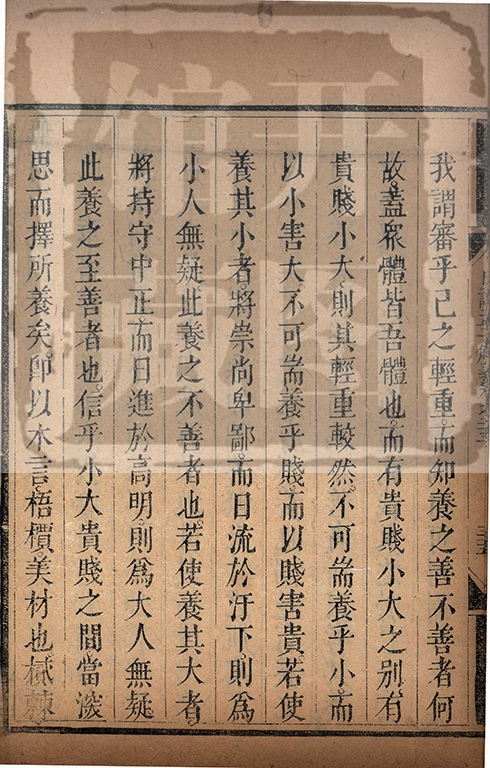 我謂審乎己之輕重而知養之善不善者何
故蓋衆體皆吾體也而有貴賤小大之别有
貴賤小大則其輕重較然不可耑養乎小而
以小害大不可耑養乎賤而以賤害貴若使
養其小者將崇尚卑鄙而日流於汙下則爲
小人無疑此養之不善者也若使養其大者
將持守中正而日進於高明則爲大人無疑
此養之至善者也信乎小大貴賤之間當
思而擇所養矣卽以木言梧檟美材也樲棘